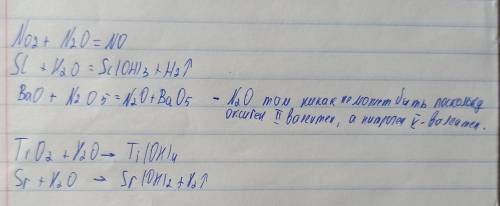 No₂ + N₂O = NO
Sc + H₂O = Sc(OH)₃ + H₂↑
BaO + N₂O₅ = N₂O + BaO₅ - N₂O там никак не может быть поскольку
оксиген II валентен, а нитроген V-валентен.
TiO₂ + H₂O → Ti(OH)₄
Sr + H₂O → Sr(OH)₂ + H₂↑